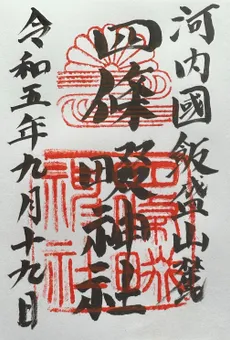 河内國飯盛山麓
四條畷神社
令和五年九月十九日
四條畷
神社